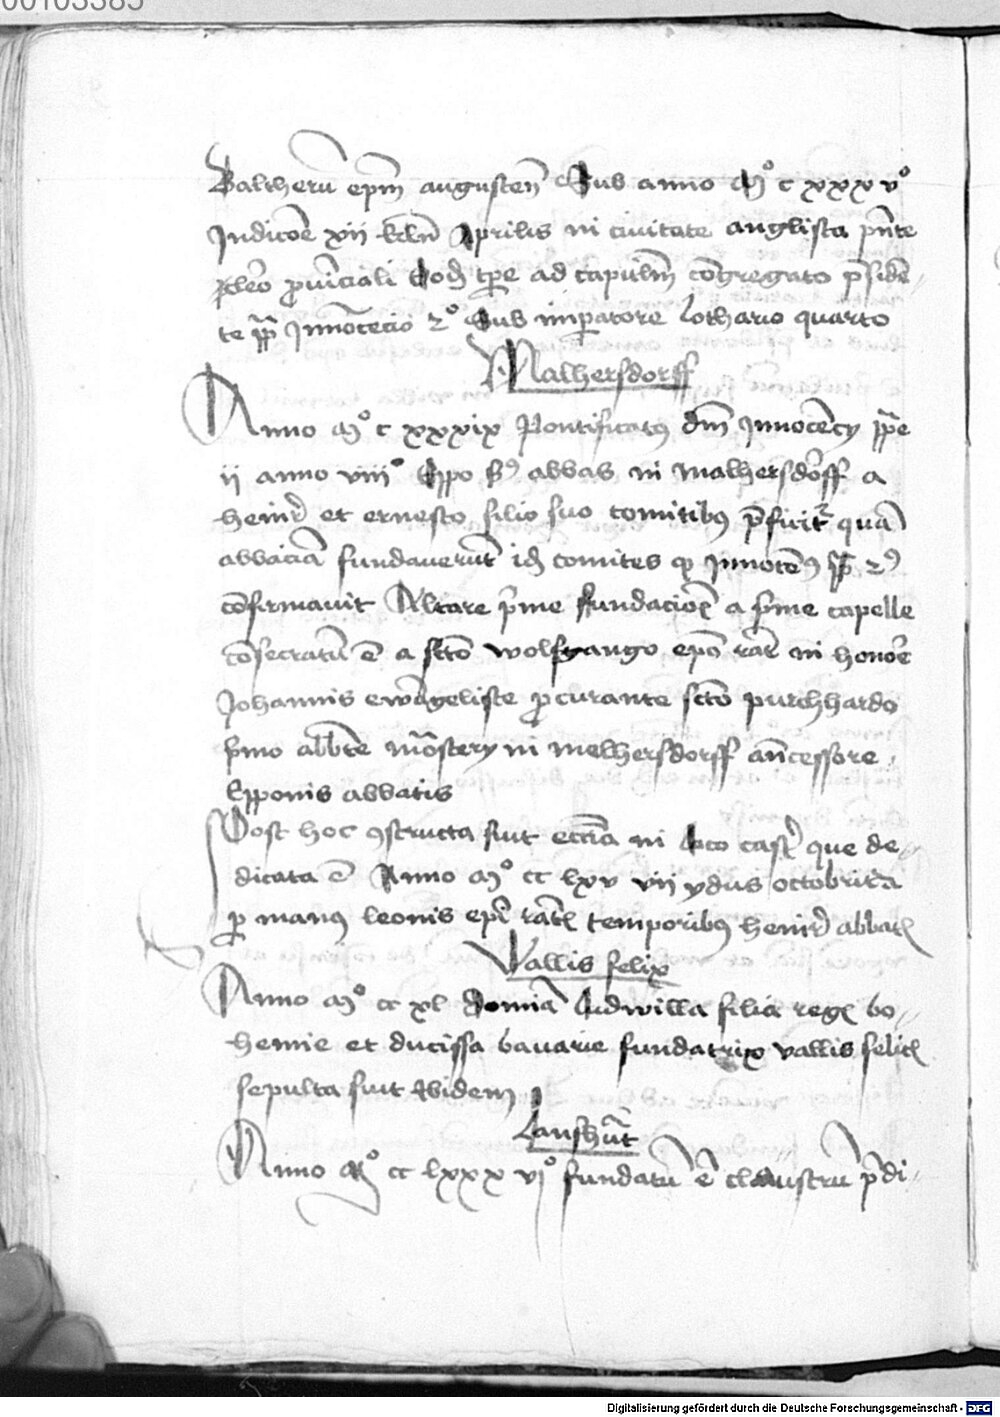 00103385
Waltherū epm̄ augusten̄ Sub anno Mº c xxxv º
Indicōe xii kln̄ Aprilis in civitate augusta p̄nte
clero p̄vinciali eod tp̄e ad capitulm̄ cōgregato p̄siden̄
te pp̄ Innocēcio 2º Sub impatore lothario quarto
Malhersdorff
Anno Mº c xxxix Pontificatꝰ dm̄ Innocēcy pp̄e
ii anno viiiº Eppo abbas in malhersdorff a
heinr̄ et ernesto filio suo comitibꝰ p̄ficit̄ quā
abbaciā fundaverūt id comites qȝ Innocēꝰ pp̄ 2ꝰ
cōfirmavit Altare p̄me fundacioīs a p̄me capelle
cōsecratū ē a scto wolfgango epo rat̄ in honore
Johannis ewāgeliste p̄curante scto purchhardo
p̄mo abbte mōstery in melhersdorff an̄cessore
Epponis abbatis
Post hoc ꝯstructa fuit eccīa in loco cast̄ que de
dicata ē Anno Mº cc lxv vii ydus octobris
p manꝰ leonis epi rat̄ temporibꝰ heinr̄ abbat̄
Vallis felix
Anno Mº cc xl domīa ludwilla filia reḡ bo
hemie et ducissa bavarie fundatrix vallis felic̄
sepulta fuit ibidem
Lanshūt
Anno Mº cc lxxx viº fundatū ē claustrū p̄di
Digitalisierung gefördert durch die Deutsche Forschungsgemeinschaft - DFG